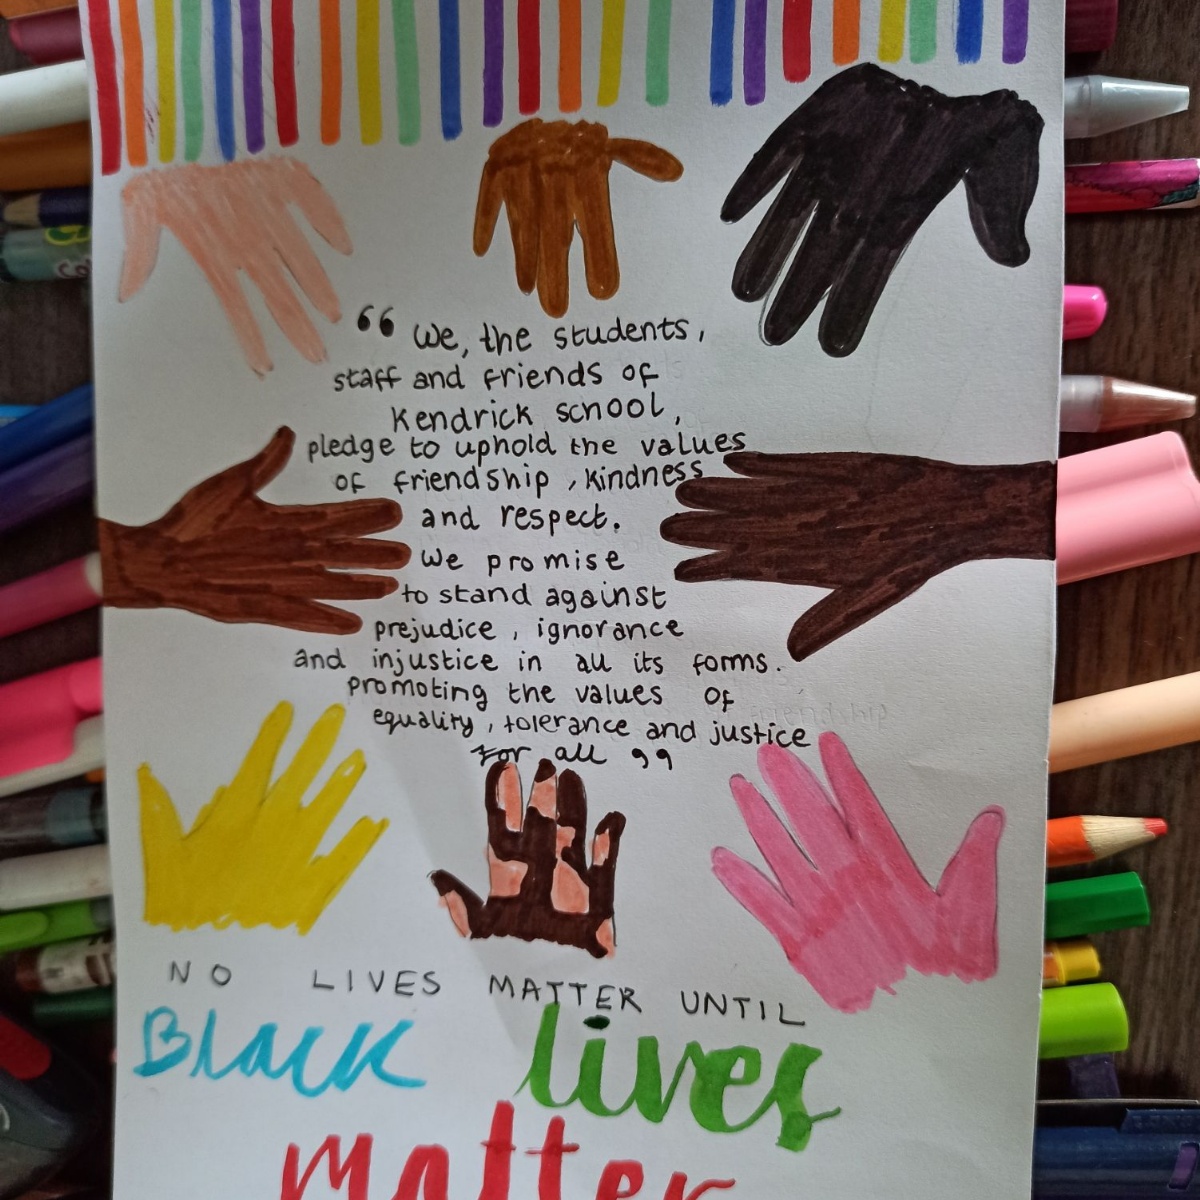 “ We, the students,
staff and friends of
Kendrick school,
pledge to uphold the values
of friendship, kindness
and respect.
We promise
to stand against
prejudice, ignorance
and injustice in all its forms.
promoting the values of
equality, tolerance and justice
for all ”
NO LIVES MATTER UNTIL
Black lives
matter